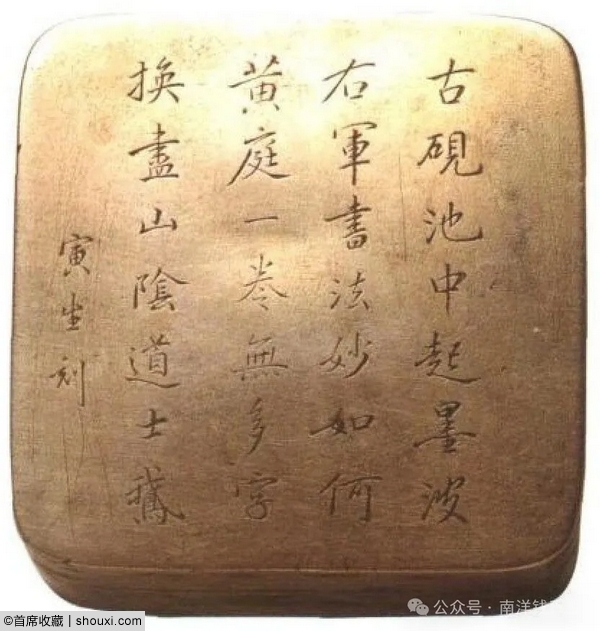 古硯池中起墨波
右軍書法妙如何
黄庭一卷無多字
換盡山陰道士鵞
寅生刻
©首席收藏 | shouxi.com
公众号 · 南洋钱